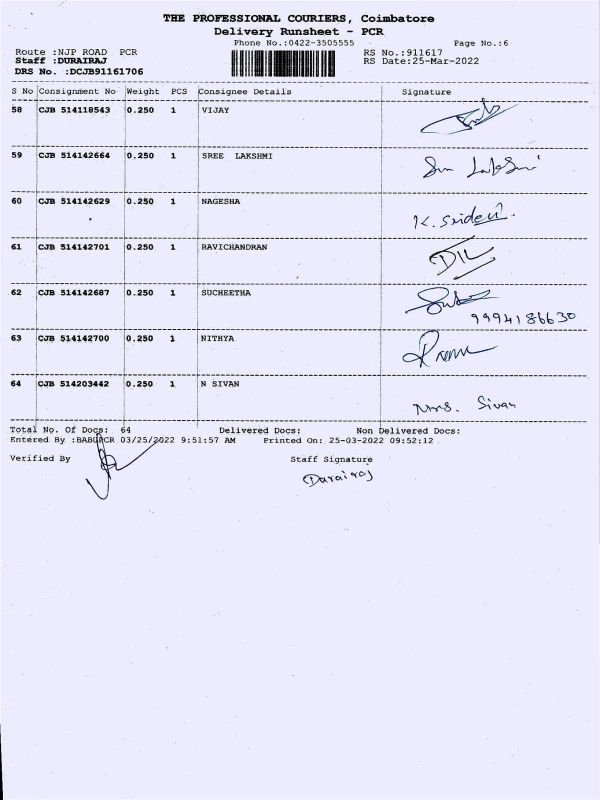 THE PROFESSIONAL COURIERS, Coimbatore
Delivery Runsheet - PCR
Phone No.:0422-3505555 Page No.:6
Route :NJP ROAD PCR RS No.:911617
Staff :DURAIRAJ RS Date:25-Mar-2022
DRS No. :DCJB91161706
S No Consignment No Weight PCS Consignee Details Signature
58 CJB 514118543 0.250 1 VIJAY
59 CJB 514142664 0.250 1 SREE LAKSHMI
60 CJB 514142629 0.250 1 NAGESHA K. Sridevi
61 CJB 514142701 0.250 1 RAVICHANDRAN
62 CJB 514142687 0.250 1 SUCHEETHA
9994186630
63 CJB 514142700 0.250 1 NITHYA
64 CJB 514203442 0.250 1 N SIVAN
Sivan
Total No. Of Docs: 64 Delivered Docs: Non Delivered Docs:
Entered By :BABUPCR 03/25/2022 9:51:57 AM Printed On: 25-03-2022 09:52:12
Verified By Staff Signature
Durairaj